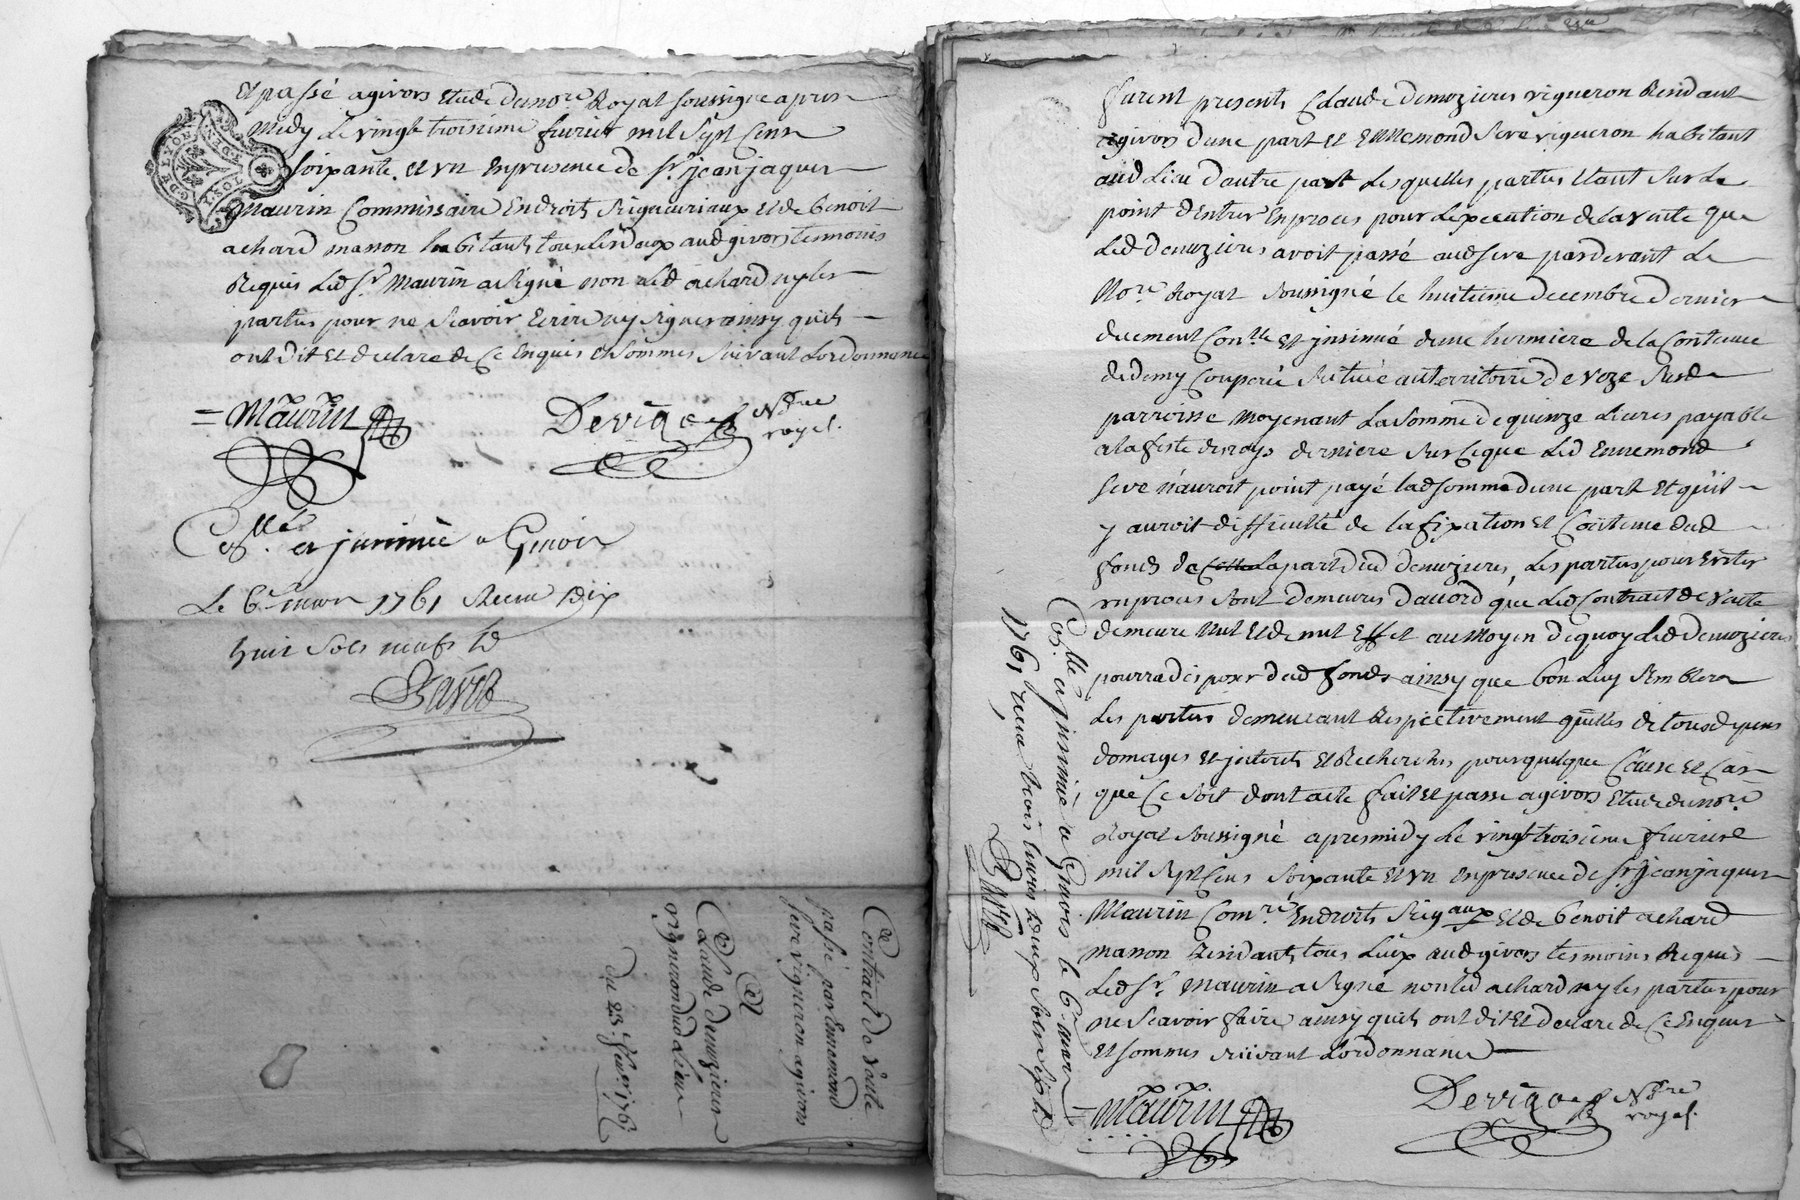 et passé a givors etude du nore Royal soussigne apres
midy le vingt troisieme fevrier mil sept cens
soixante et un en presence de sr jean jaques
maurin Commissaire en droits seigneuriaux et de benoit
achard masson habitants tous les deux aud givors tesmoins
Requis Led sr maurin a signé non led achard ny les
parties pour ne scavoir Ecrire ny signer ainsy quils
ont dit et declare de ce Enquis et sommes suivant Lordonnance
= Maurin
Devigne Nore
royal.
Conlle et jnsinué a Givors
Le 6e mars 1761 Receu dix
huit sols
GENER DE LYON
Contract de vente
passé par Ennemond
seve vigneron a givors
A
Claude demozieres
vigneron dud Lieu
du 23 fevrier 1761
furent presents Claude demozieres vigneron Residant
a givors dune part et Ennemond seve vigneron habitant
aud Lieu dautre part Lesquelles parties Etant sur le
point dentrer en proces pour Lexecution de la vente que
Led demozieres avoit passé aud seve pardevant Le
Nore Royal soussigné le huitieme decembre dernier
duement Conlle et jnsinué dune hermiere de la Contenue
de demy Couperée scituée au territoire de voze susde
parroisse moyenant La somme de quinze Livres payable
a la feste des roys derniere sur ce que Led Ennemond
seve n'auroit point payé lad somme dune part et quil
y auroit difficulté de la fixation et Contenue dud
fonds de Cette La part dud demozieres, Les parties pour Eviter
un proces sont demeurés daccord que Led Contract de vente
demeure nul et de nul Effet au moyen de quoy Led demozieres
pourra disposer dud fonds ainsy que bon Luy semblera
Les parties demeurant Respectivement quittes de tous depens
domages et jnterets et Recherches pour quelque Cause et Cas
que Ce soit dont acte fait et passé a givors Etude du nore
Royal soussigné apres midy Le vingt troisieme fevrier
mil sept cens soixante et un en presence de sr jean jaques
Maurin Comre En droits seigaux et de benoit achard
masson Residants tous deux aud givors tesmoins Requis
Led sr. maurin a signé non led achard ny les parties pour
ne scavoir faire ainsy quils ont dit et declare de Ce Enquis
et sommes suivant Lordonnance
= Maurin
Devigne Nore
royal.
Conlle et jnsinué a Givors le 6e mars
1761 receu trois livres douze sols